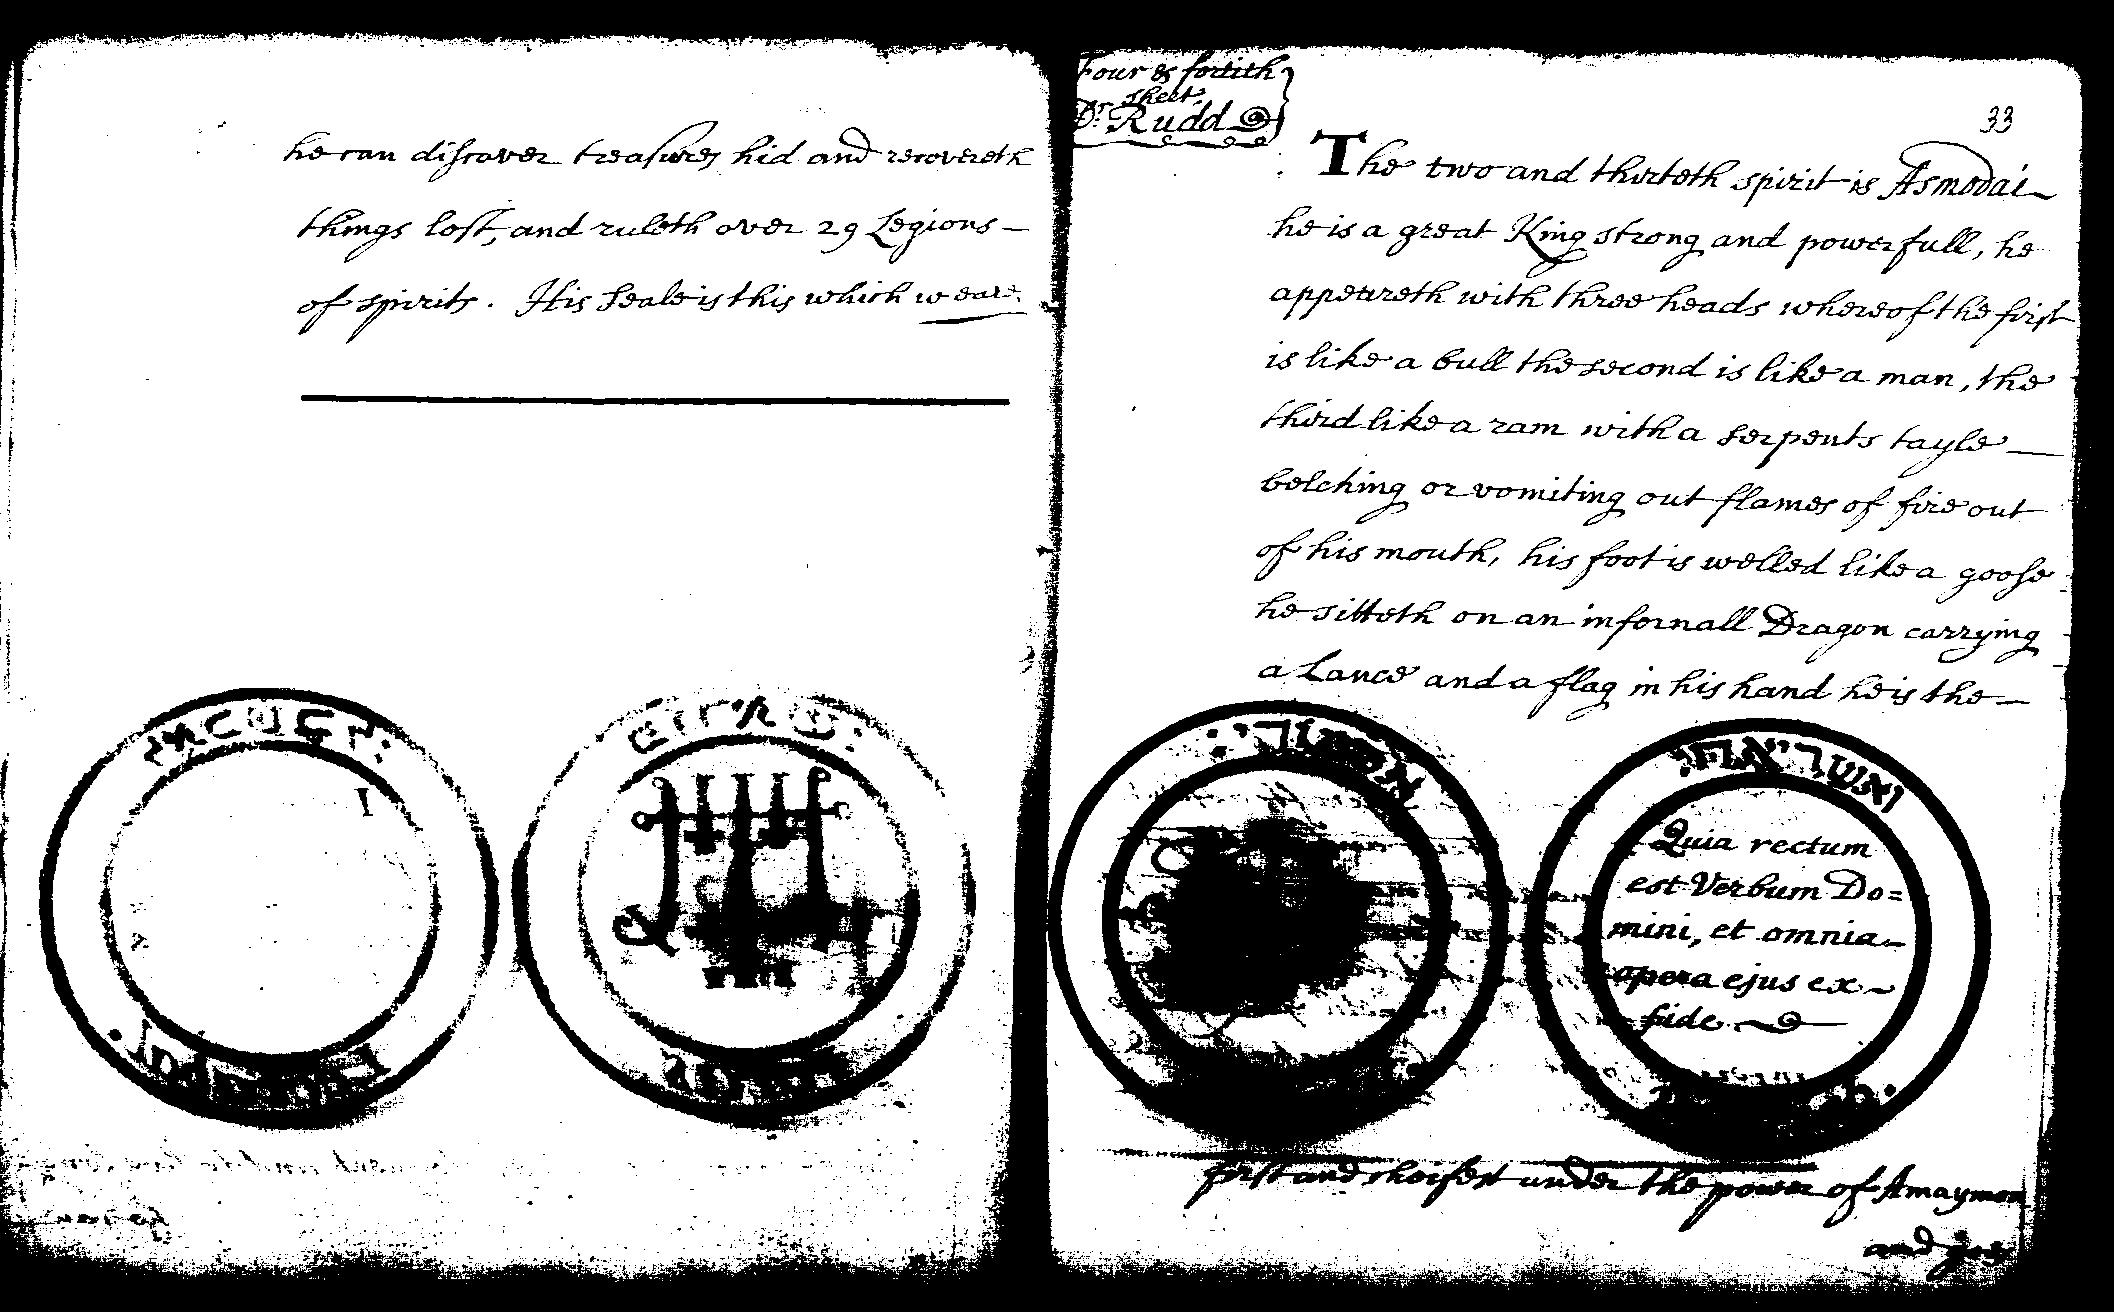 he can discover treasures hid and recovereth
things lost, and ruleth over 29 Legions –
of spirits. His Seale is this which weare.
Four & fortith
sheet.
Dr. Rudd
33
The two and thirteth spirit is Asmodai
he is a great King strong and powerfull, he
appeareth with three heads whereof the first
is like a bull the second is like a man, the
third like a ram with a serpents tayle —
belching or vomiting out flames of fire out
of his mouth, his foot is welled like a goose
he sitteth on an infernall Dragon carrying
a Lance and a flag in his hand he is the —
אסמודי:
ושריאה:
Quia rectum
est Verbum Do=
mini, et omnia
opera ejus ex
fide
first and cheifest under the power of Amaymon
and